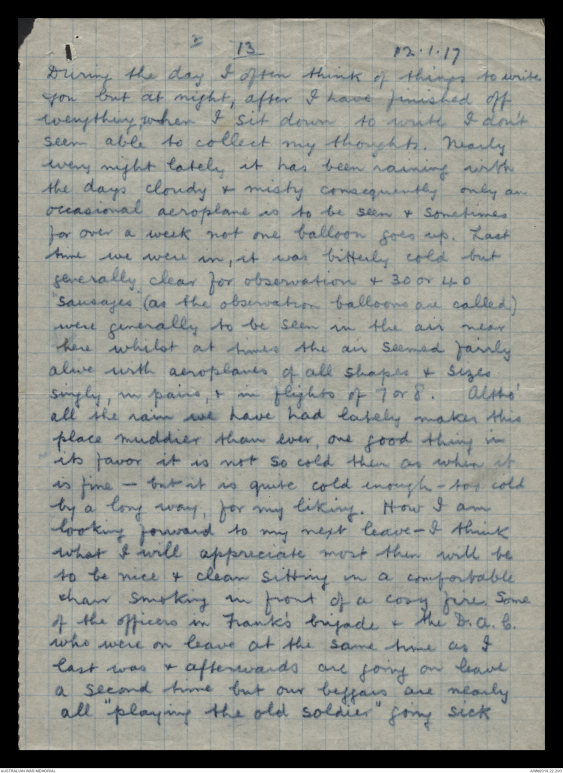 13
12.1.17
During the day I often think of things to write
you but at night, after I have finished off
everything, when I sit down to write I don't
seem able to collect my thoughts. Nearly
every night lately it has been raining with
the days cloudy & misty consequently only an
occasional aeroplane is to be seen & sometimes
for over a week not one balloon goes up. Last
time we were in, it was bitterly cold but
generally clear for observation & 30 or 40
"sausages (as the observation balloons are called)
were generally to be seen in the air near
here whilst at times the air seemed fairly
alive with aeroplanes of all shapes & sizes
singly, in pairs, & in flights of 7 or 8. Altho'
all the rain we have had lately makes this
place muddier than ever, one good thing in
its favor it is not so cold then as when it
is fine – but it is quite cold enough – too cold
by a long way, for my liking. How I am
looking forward to my next leave – I think
what I will appreciate most then will be
to be nice & clean sitting in a comfortable
chair smoking in front of a cosy fire. Some
of the officers in Frank's brigade & the D.A.C.
who were on leave at the same time as I
last was & afterwards are going on leave
a second time but our beggars are nearly
all "playing the old soldier" going sick
AUSTRALIAN WAR MEMORIAL